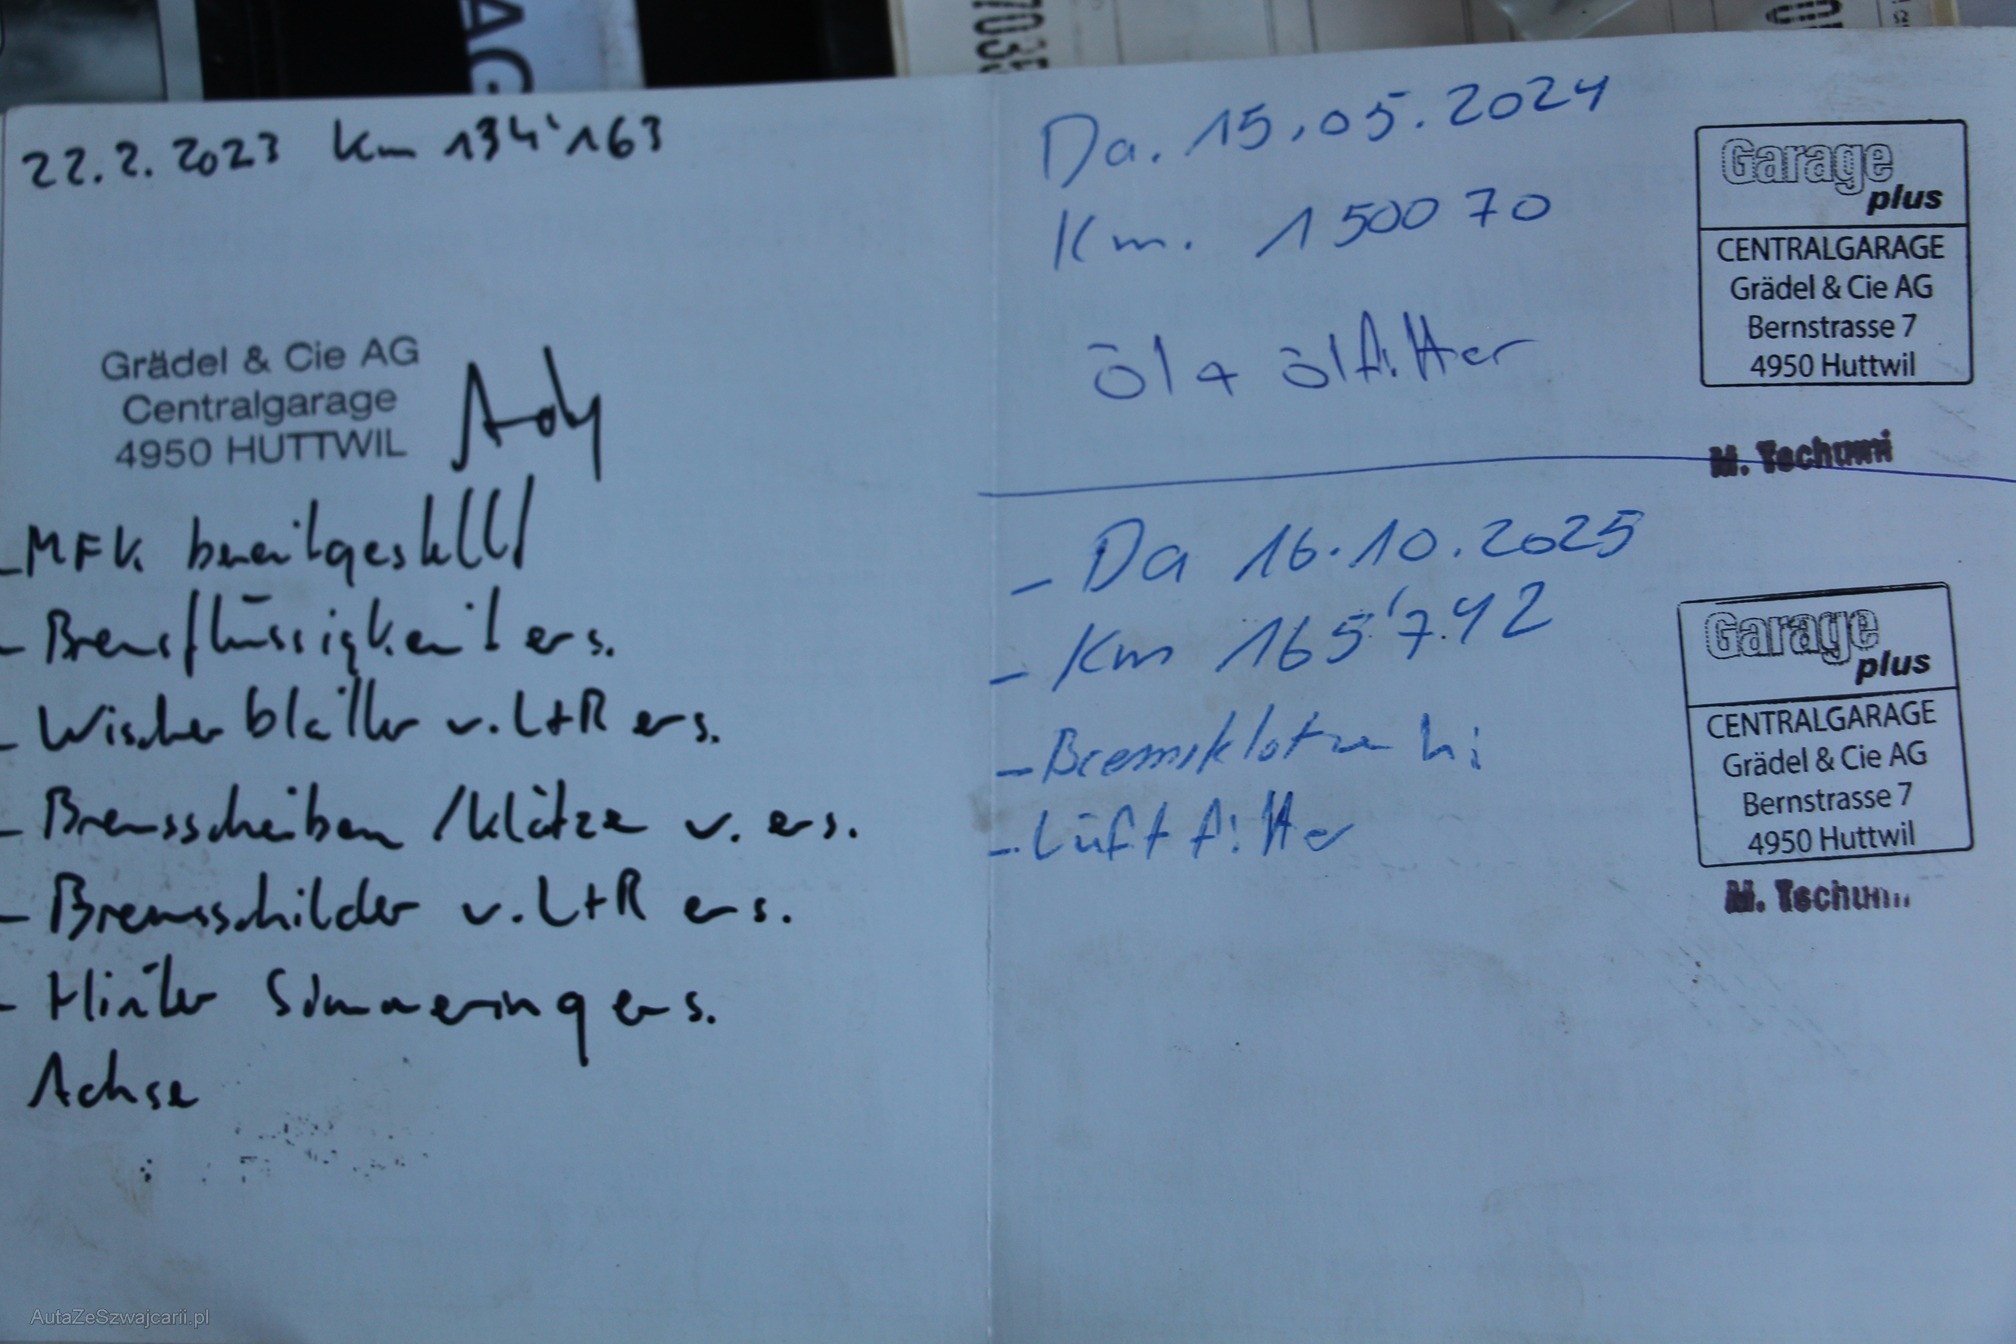 22.2.2023 Km 134'163
Grädel & Cie AG
Centralgarage
4950 HUTTWIL
- MFK bereitgestellt
- Bremsflüssigkeit ers.
- Wischerblätter v. L+R ers.
- Bremsscheiben / Klötze v. ers.
- Bremsschilder v. L+R ers.
- Hinter Simmering ers.
Achse
Da. 15.05.2024
Km. 150070
öl + ölfilter
Garage
plus
CENTRALGARAGE
Grädel & Cie AG
Bernstrasse 7
4950 Huttwil
M. Tschumi
- Da 16.10.2025
- Km 165'742
- Bremsklötze hi
- Luftfilter
Garage
plus
CENTRALGARAGE
Grädel & Cie AG
Bernstrasse 7
4950 Huttwil
M. Tschumi
AutaZeSzwajcarii.pl